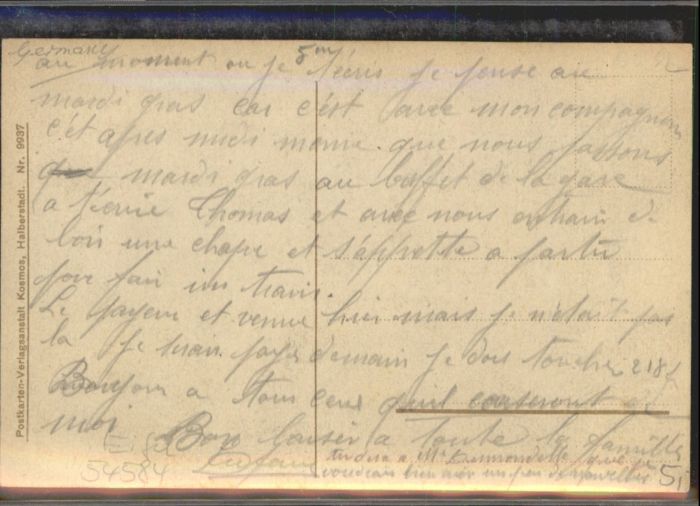 Germany
au moment ou je t'ecris je pense au
mardi gras car c'est avec mon compagnon
c'et apres midi meme que nous passons
mardi gras au buffet de la gare
a Thomas et avec nous entrain de
boir une chope et s'apprette a partir
pour fair un train.
Le payeur et venue hier mais je n'etait pas
la je demain je dois toucher 218 f
Bonjour a tous ceux qu'il
moi. Bon baiser a toute la famille
54584
tu dira a que je
voudrais bien avoir un peu de nouvelles
5,
Postkarten-Verlagsanstalt Kosmos, Halberstadt. Nr. 9937